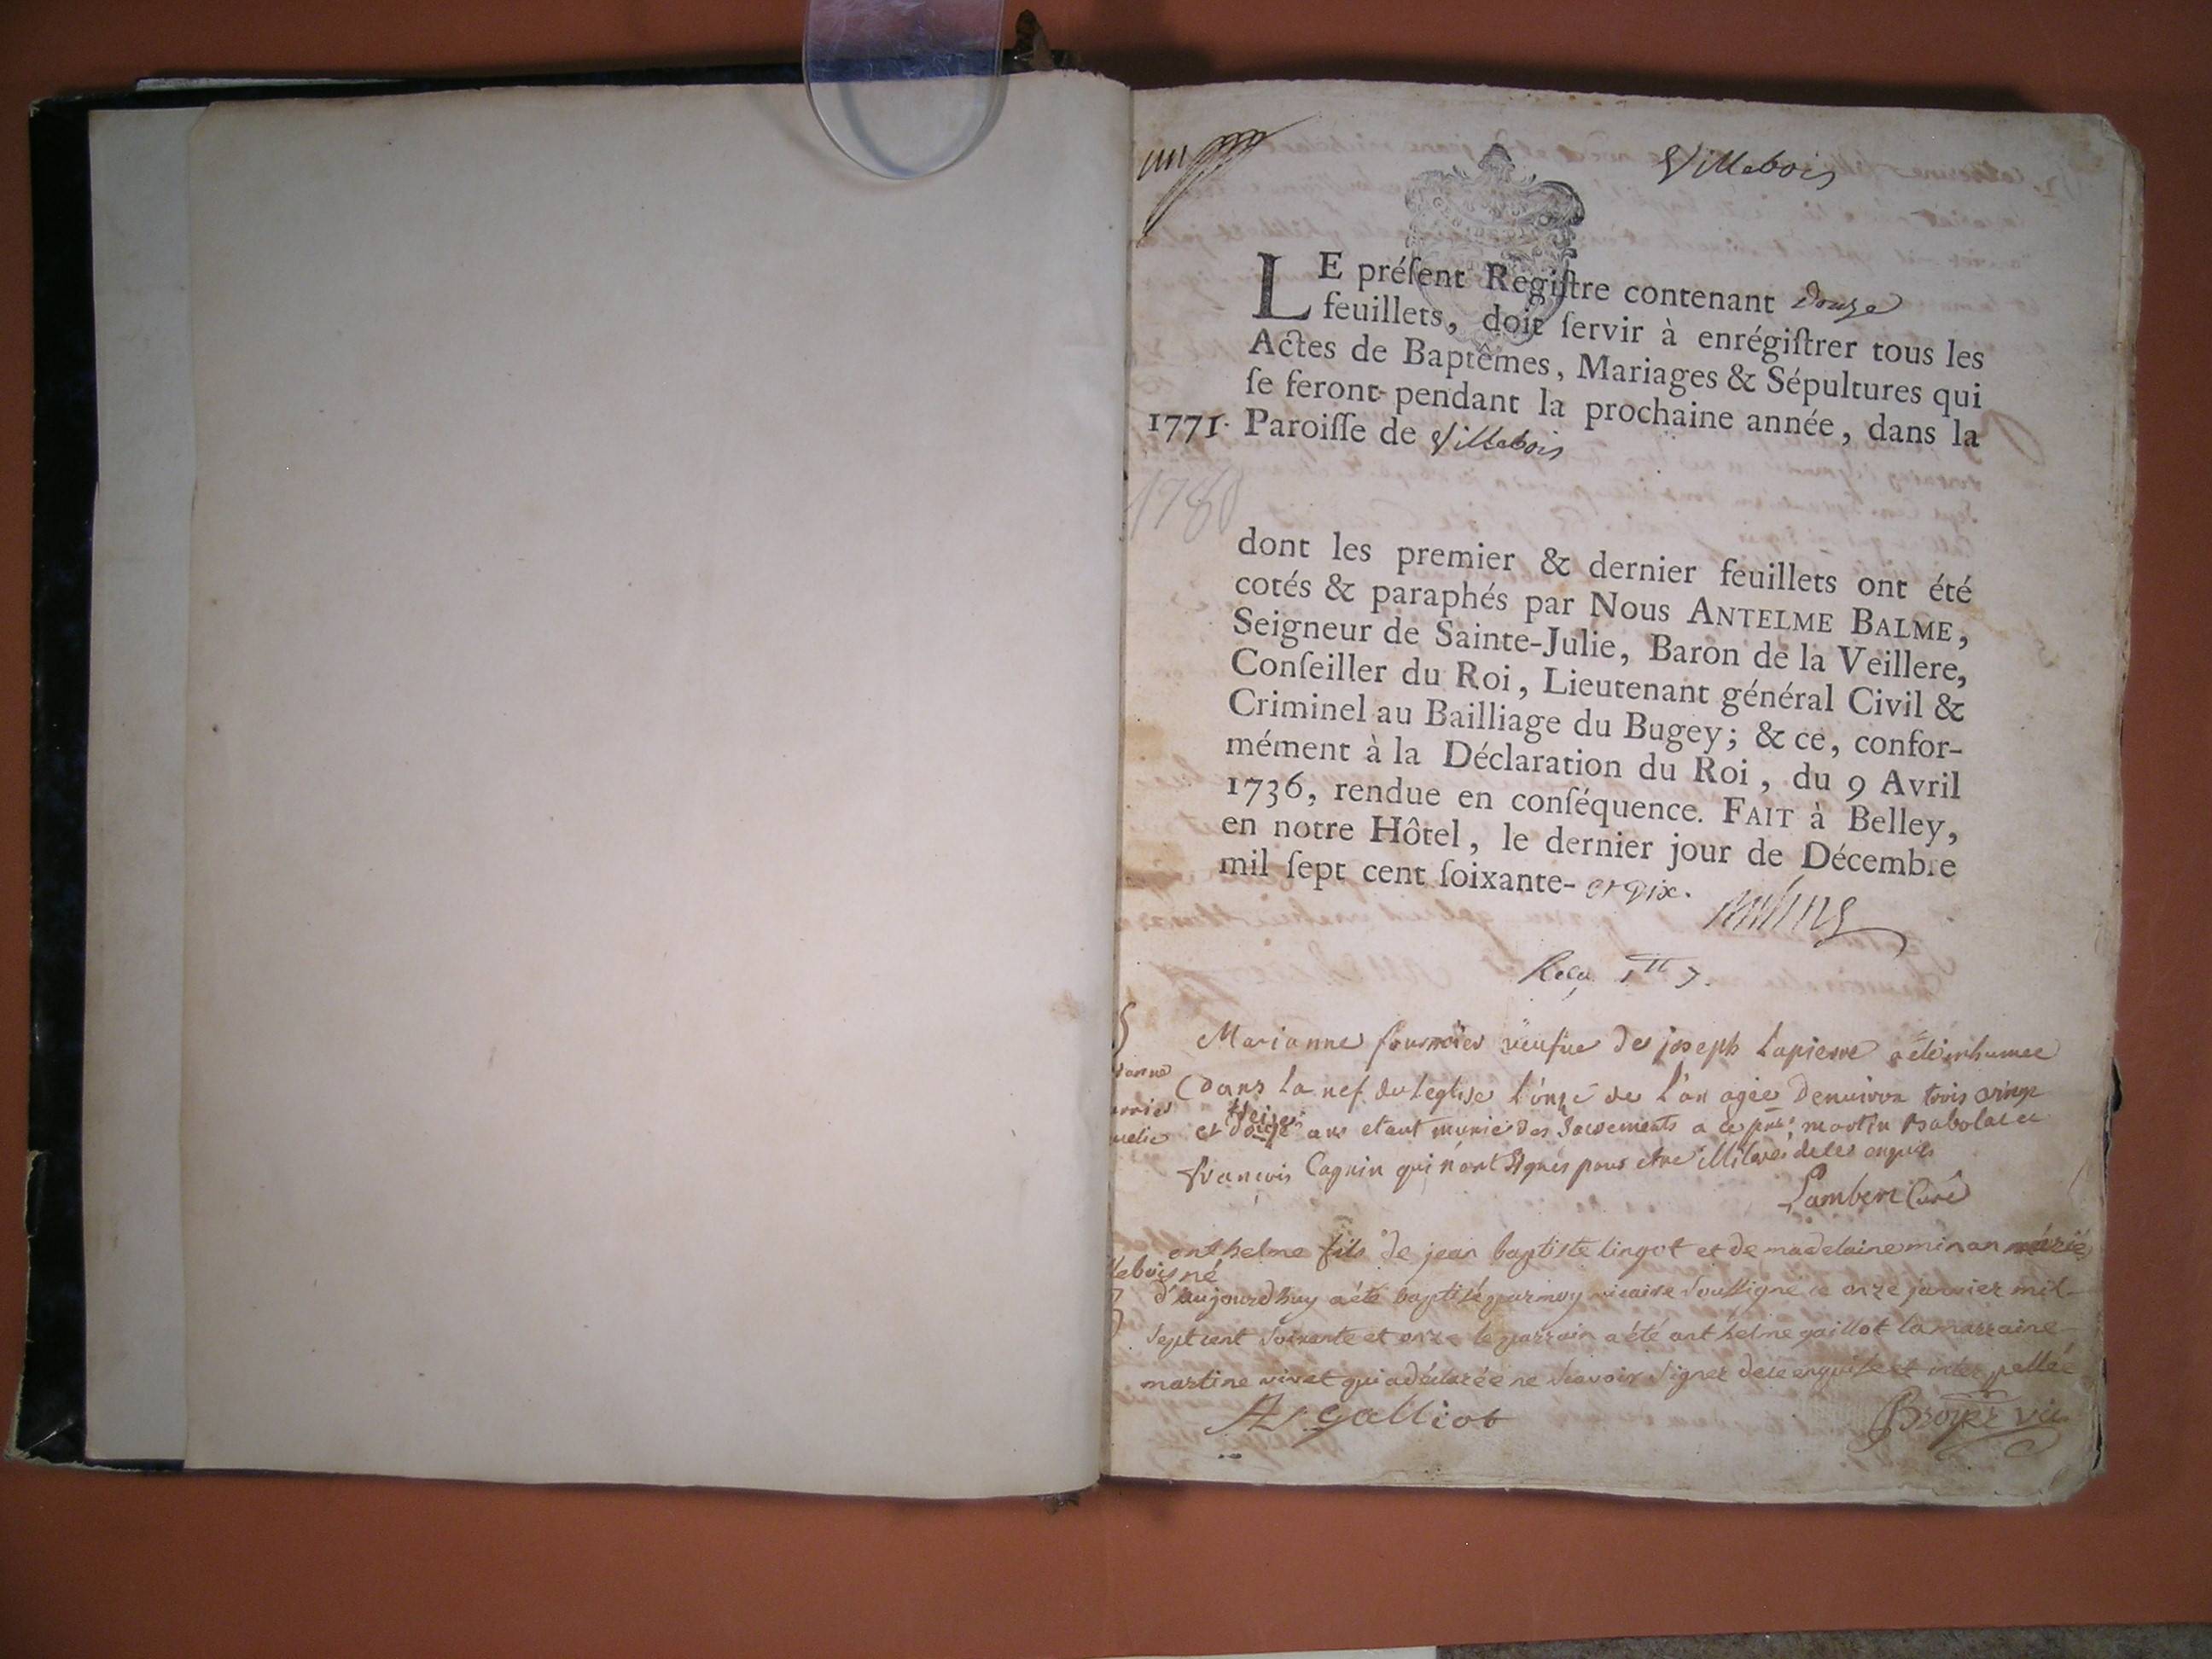 Villebois
LE préſent Regiſtre contenant douze
feuillets, doit ſervir à enrégiſtrer tous les
Actes de Baptêmes, Mariages & Sépultures qui
ſe feront pendant la prochaine année, dans la
1771. Paroiſſe de Villebois
1780
dont les premier & dernier feuillets ont été
cotés & paraphés par Nous ANTELME BALME,
Seigneur de Sainte-Julie, Baron de la Veillere,
Conſeiller du Roi, Lieutenant général Civil &
Criminel au Bailliage du Bugey; & ce, confor-
mément à la Déclaration du Roi, du 9 Avril
1736, rendue en conſéquence. FAIT à Belley,
en notre Hôtel, le dernier jour de Décembre
mil ſept cent ſoixante- et dix.
Marianne fournier veufue de joseph Lapierre a été inhumee
dans la nef de leglise l'onze de l'an agée denuiron trois vingt
et treize ans etant munie des Sacrements a ce martin
françois Cagnin qui n'ont Signés pour etre illitérés de ce enquis
Lambert Curé
anthelme fils de jean baptiste lingot et de madelaine minan mariés
né
d'aujourdhuy a été baptisé par moy vicaire Soussigné ce onze janvier mil
Sept cent Soixante et onze le parrain a été anthelme gaillot la marraine
martine vivet qui a déclarée ne Scavoir Signer de ce enquise et interpellée
galliot
Broyer vic